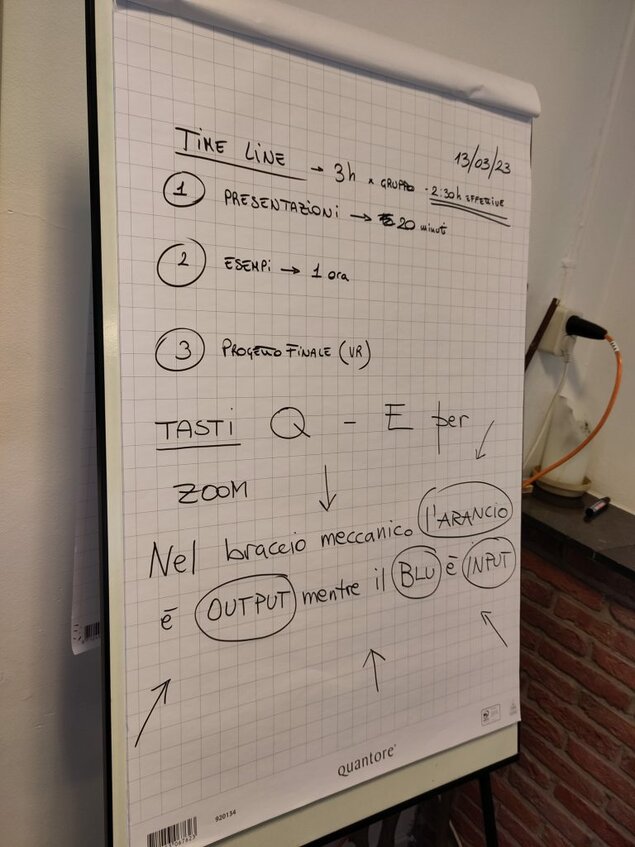 13/03/23
TIME LINE → 3h x GRUPPO - 2:30h EFFETTIVE
1 PRESENTAZIONI → 20 minuti
2 ESEMPI → 1 ora
3 PROGETTO FINALE (VR)
TASTI Q - E per
ZOOM
Nel braccio meccanico l'ARANCIO
è OUTPUT mentre il BLU è INPUT
quantore
920134